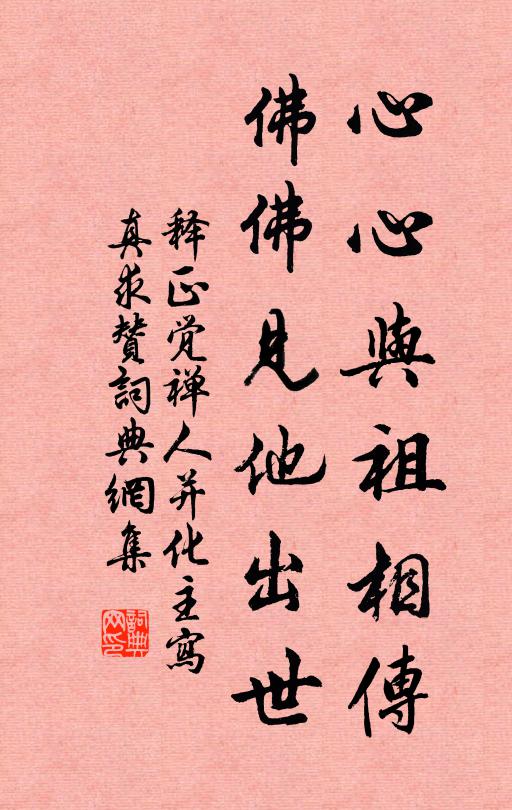 心心與祖相傳
佛佛見他出世
释正觉禅人并化主寫
真求贊詞典網集
詞典网印